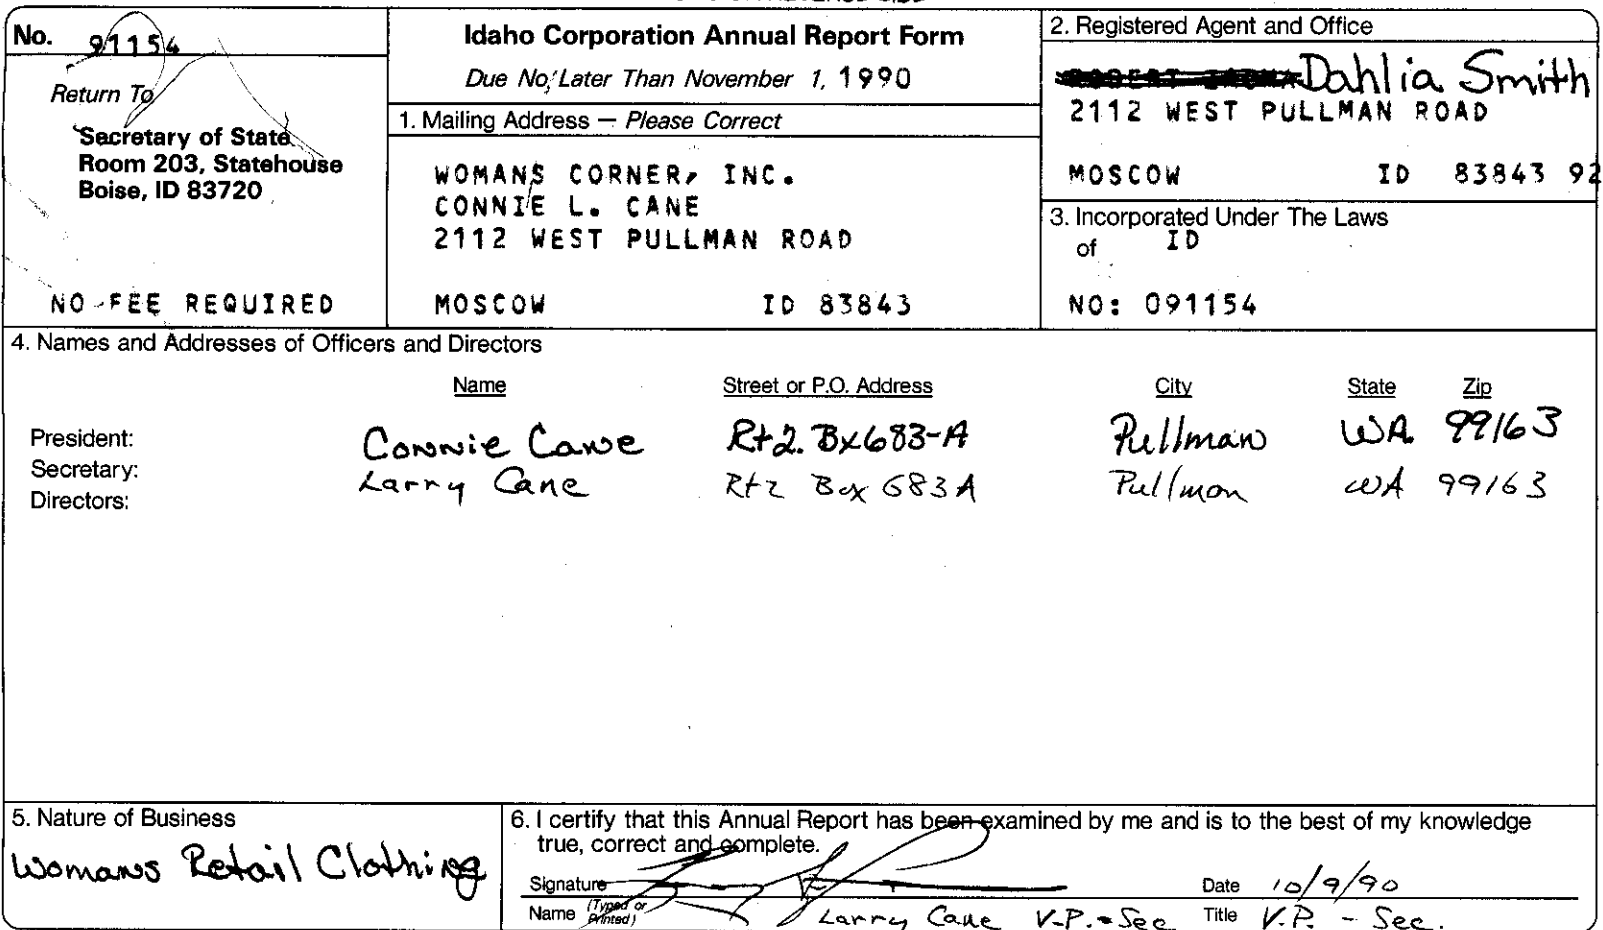 No. 91154
Return To
Secretary of State
Room 203, Statehouse
Boise, ID 83720
NO FEE REQUIRED
Idaho Corporation Annual Report Form
Due No Later Than November 1, 1990
1. Mailing Address — Please Correct
WOMANS CORNER, INC.
CONNIE L. CANE
2112 WEST PULLMAN ROAD
MOSCOW ID 83843
2. Registered Agent and Office
Dahlia Smith
2112 WEST PULLMAN ROAD
MOSCOW ID 83843 92
3. Incorporated Under The Laws
of ID
NO: 091154
4. Names and Addresses of Officers and Directors
Name Street or P.O. Address City State Zip
President: Connie Cane Rt2. Bx683-A Pullman WA. 99163
Secretary: Larry Cane Rt2 Box 683A Pullman WA 99163
Directors:
5. Nature of Business
Womans Retail Clothing
6. I certify that this Annual Report has been examined by me and is to the best of my knowledge
true, correct and complete.
Signature Date 10/9/90
Name (Typed or Printed) Larry Cane V.P. - Sec Title V.P. - Sec.